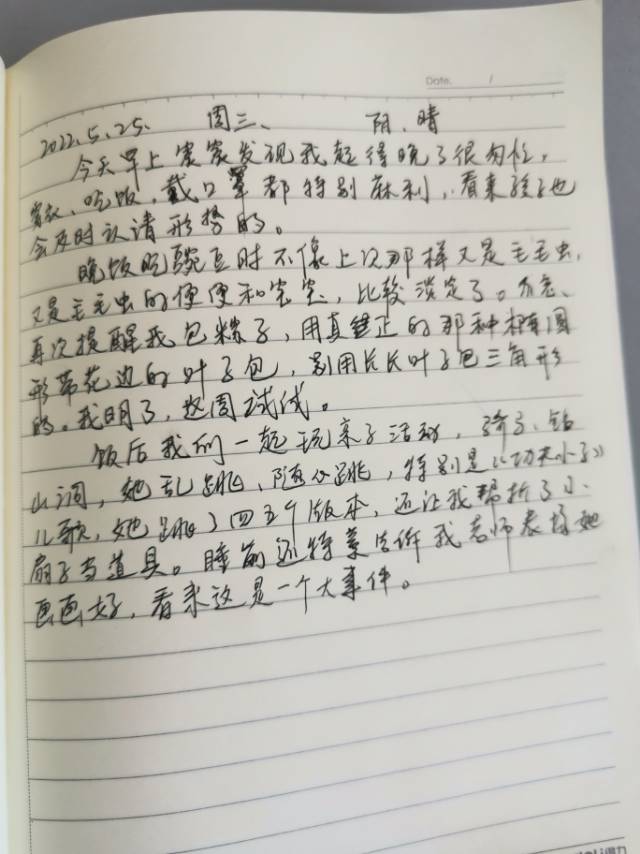 Date. /
2022.5.25. 周三、 阴、晴
今天早上宸宸发现我起得晚了很匆忙,
穿衣、吃饭、戴口罩都特别麻利,看来孩子也
会及时认清形势的。
晚饭吃豌豆时不像上次那样又是毛毛虫,
又是毛毛虫的便便和宝宝,比较淡定了。
再次提醒我包粽子,用真正的那种椭圆
形带花边的叶子包,别用长长叶子包三角形
的。我明了,这周试试。
饭后我们一起玩亲子活动,
儿歌,她跳了四五个版本,还让我帮折了小
扇子当道具。睡前还特意告诉我老师表扬她
画画好,看来这是一个大事件。
得力